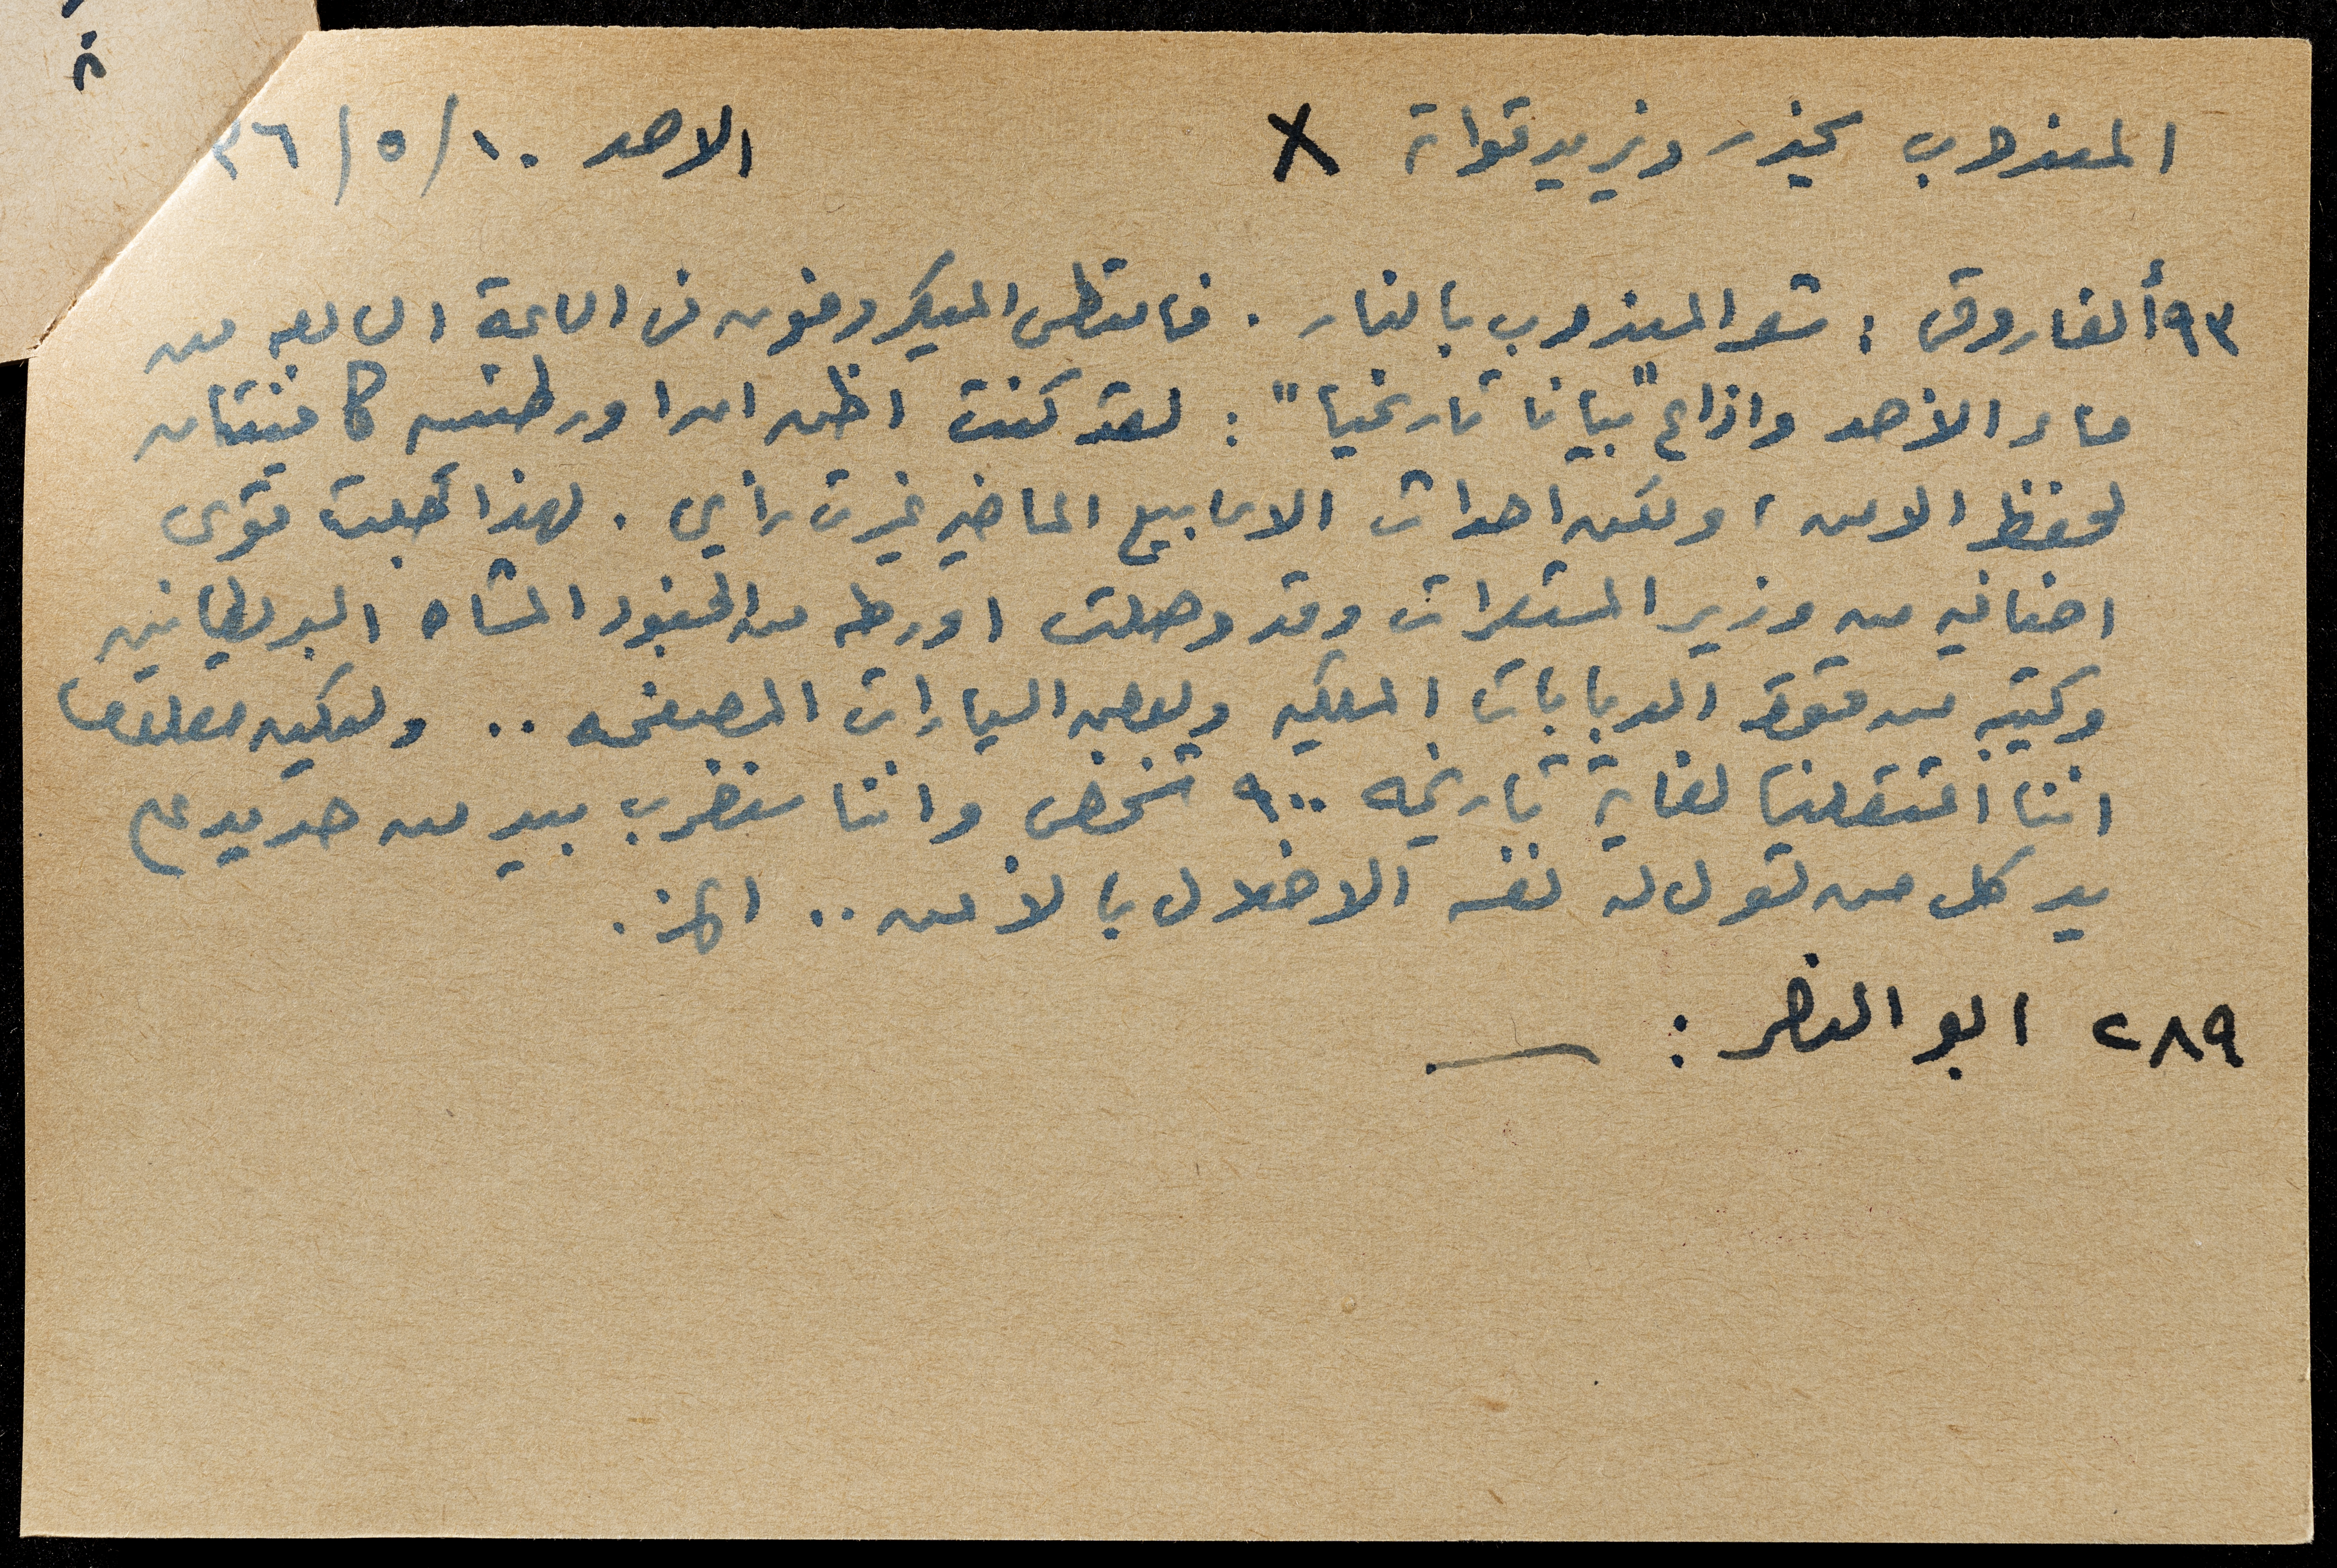 المندوب يحذر ويزيد قواته X الاحد ١٠/٥/٣٦
٩٣أ الفاروقي : شعر المندوب بالنار . فامتطى الميكروفون في الساعة السابعه من
مساء الأحد واذاع "بيانا تاريخيا" : لقد كنت اظن ان اورطتين كافيتان
لحفظ الامن ، ولكن احداث الاسابيع الماضيه غيرت رأيي . لهذا طلبت قوى
اضافيه من وزير المستعمرات وقد وصلت اورطه من الجنود المشاه البريطانيين
وكتيبه من قوة الدبابات الملكيه وبعض السيارات المصفحه .. وليكن معلوما
اننا اعتقلنا لغاية تاريخه ٩٠٠ شخص واننا سنضرب بيد من حديد على
يد كل من تسول له نفسه الاخلال بالأمن .. الخ .
٢٨٩ ابو النصر : —